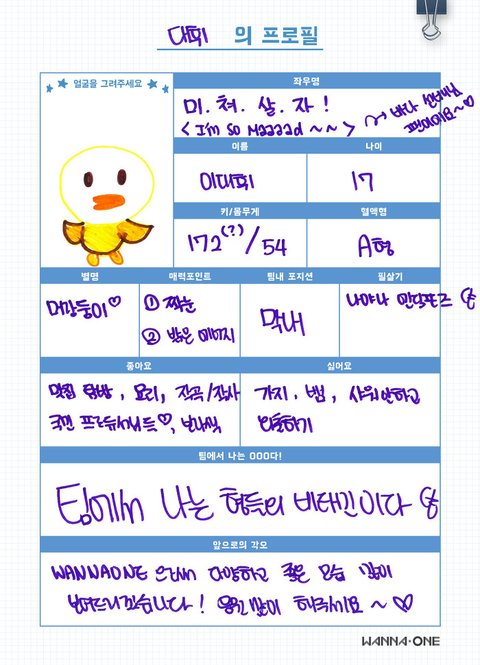 대휘 의 프로필
얼굴을 그려주세요
좌우명
미.쳐.살.자!
<I'm so Maaaad~~> → 바다 선배님
팬이에요~♡
이름
나이
이대휘
17
키/몸무게
혈액형
172(?)/54
A형
별명
매력포인트
팀내 포지션
필살기
머랭둥이♡
① 짝눈
② 밝은 에너지
막내
나야나 엔딩포즈
좋아요
싫어요
맛집 탐방, 요리, 작곡/작사
국민 프로듀서님들♡,
가지, 뱀, 샤워안하고
팀에서 나는 OOO다!
팀에서 나는 형들의 비타민이다
앞으로의 각오
WANNAONE 으로서 다양하고 좋은 모습 많이
보여드리겠습니다! 응원 많이 해주세요~♡
WANNA·ONE